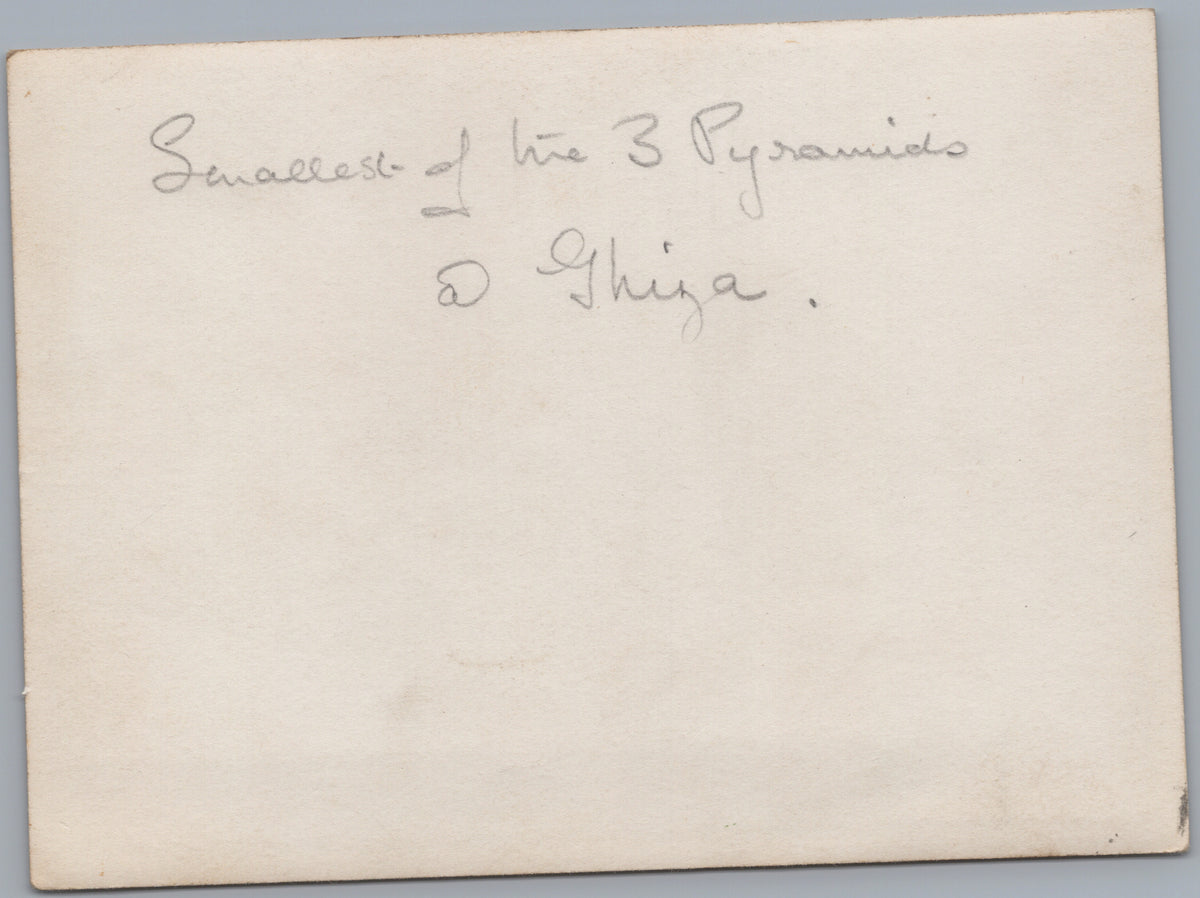 Smallest of the 3 Pyramids
@ Ghiza.